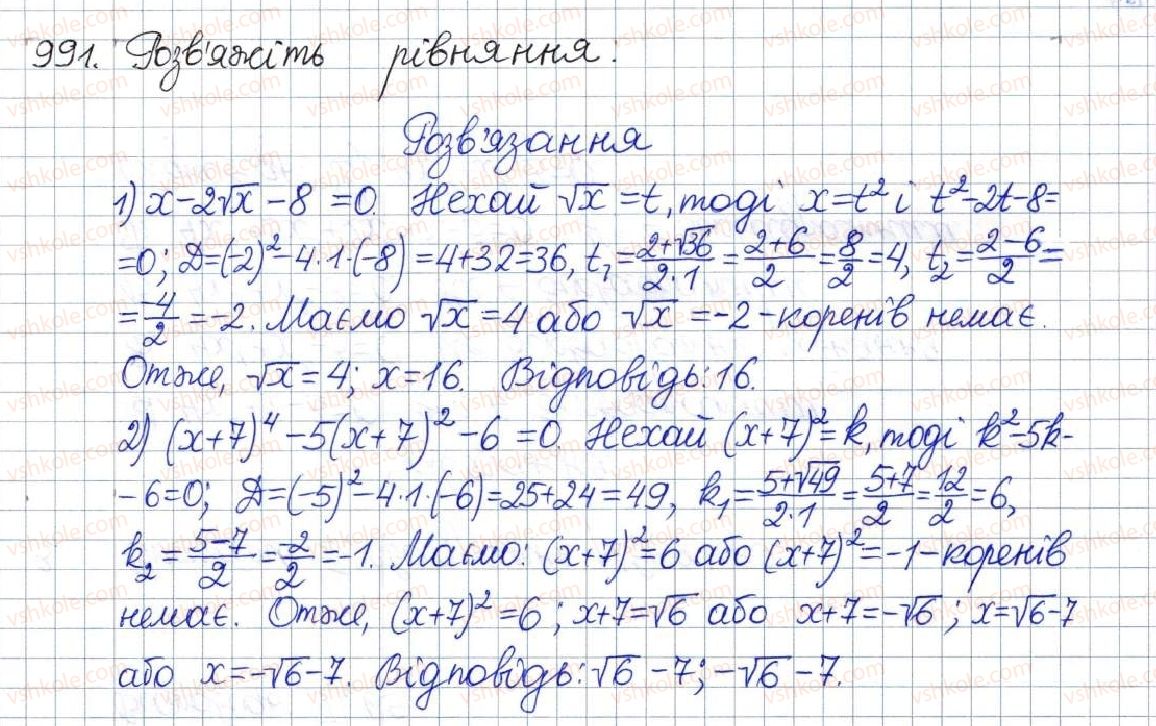 991. Розв'яжіть рівняння:
Розв'язання
1) x-2√x-8=0. Нехай √x=t, тоді x=t² і t²-2t-8=
=0; Д=(-2)²-4·1·(-8)=4+32=36, t₁=(2+√36)/(2·1)=(2+6)/2=8/2=4, t₂=(2-6)/2=
=-4/2=-2. Маємо √x=4 або √x=-2-коренів немає.
Отже, √x=4; x=16. Відповідь: 16.
2) (x+7)⁴-5(x+7)²-6=0. Нехай (x+7)²=k, тоді k²-5k-
-6=0; Д=(-5)²-4·1·(-6)=25+24=49, k₁=(5+√49)/(2·1)=(5+7)/2=12/2=6,
k₂=(5-7)/2=-2/2=-1. Маємо: (x+7)²=6 або (x+7)²=-1-коренів
немає. Отже, (x+7)²=6; x+7=√6 або x+7=-√6; x=√6-7
або x=-√6-7. Відповідь: √6-7; -√6-7.
vshkole.com